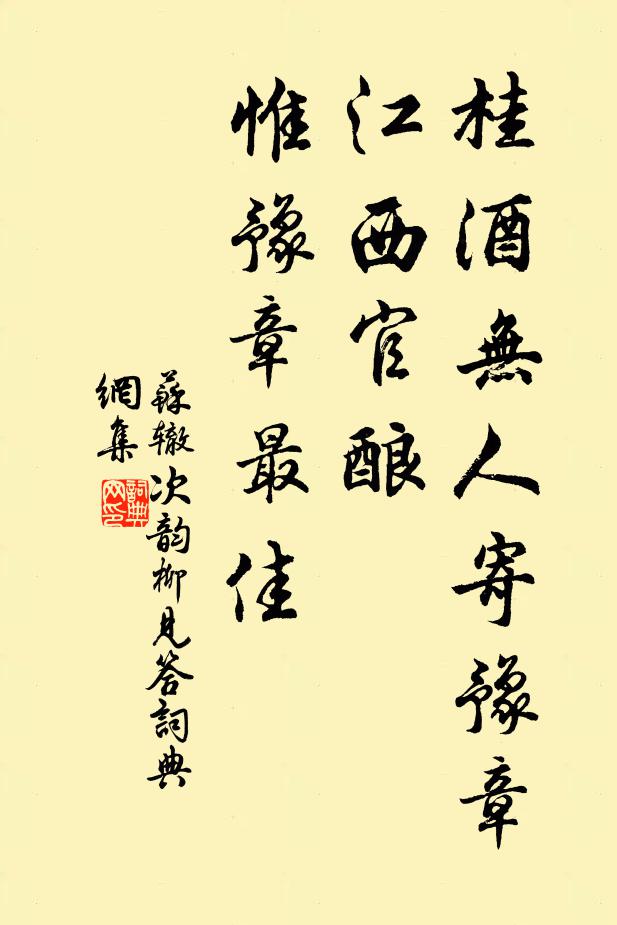 桂酒無人寄豫章
江西官酿
惟豫章最佳
蘇辙次韵柳見答詞典
網集
詞典
网印